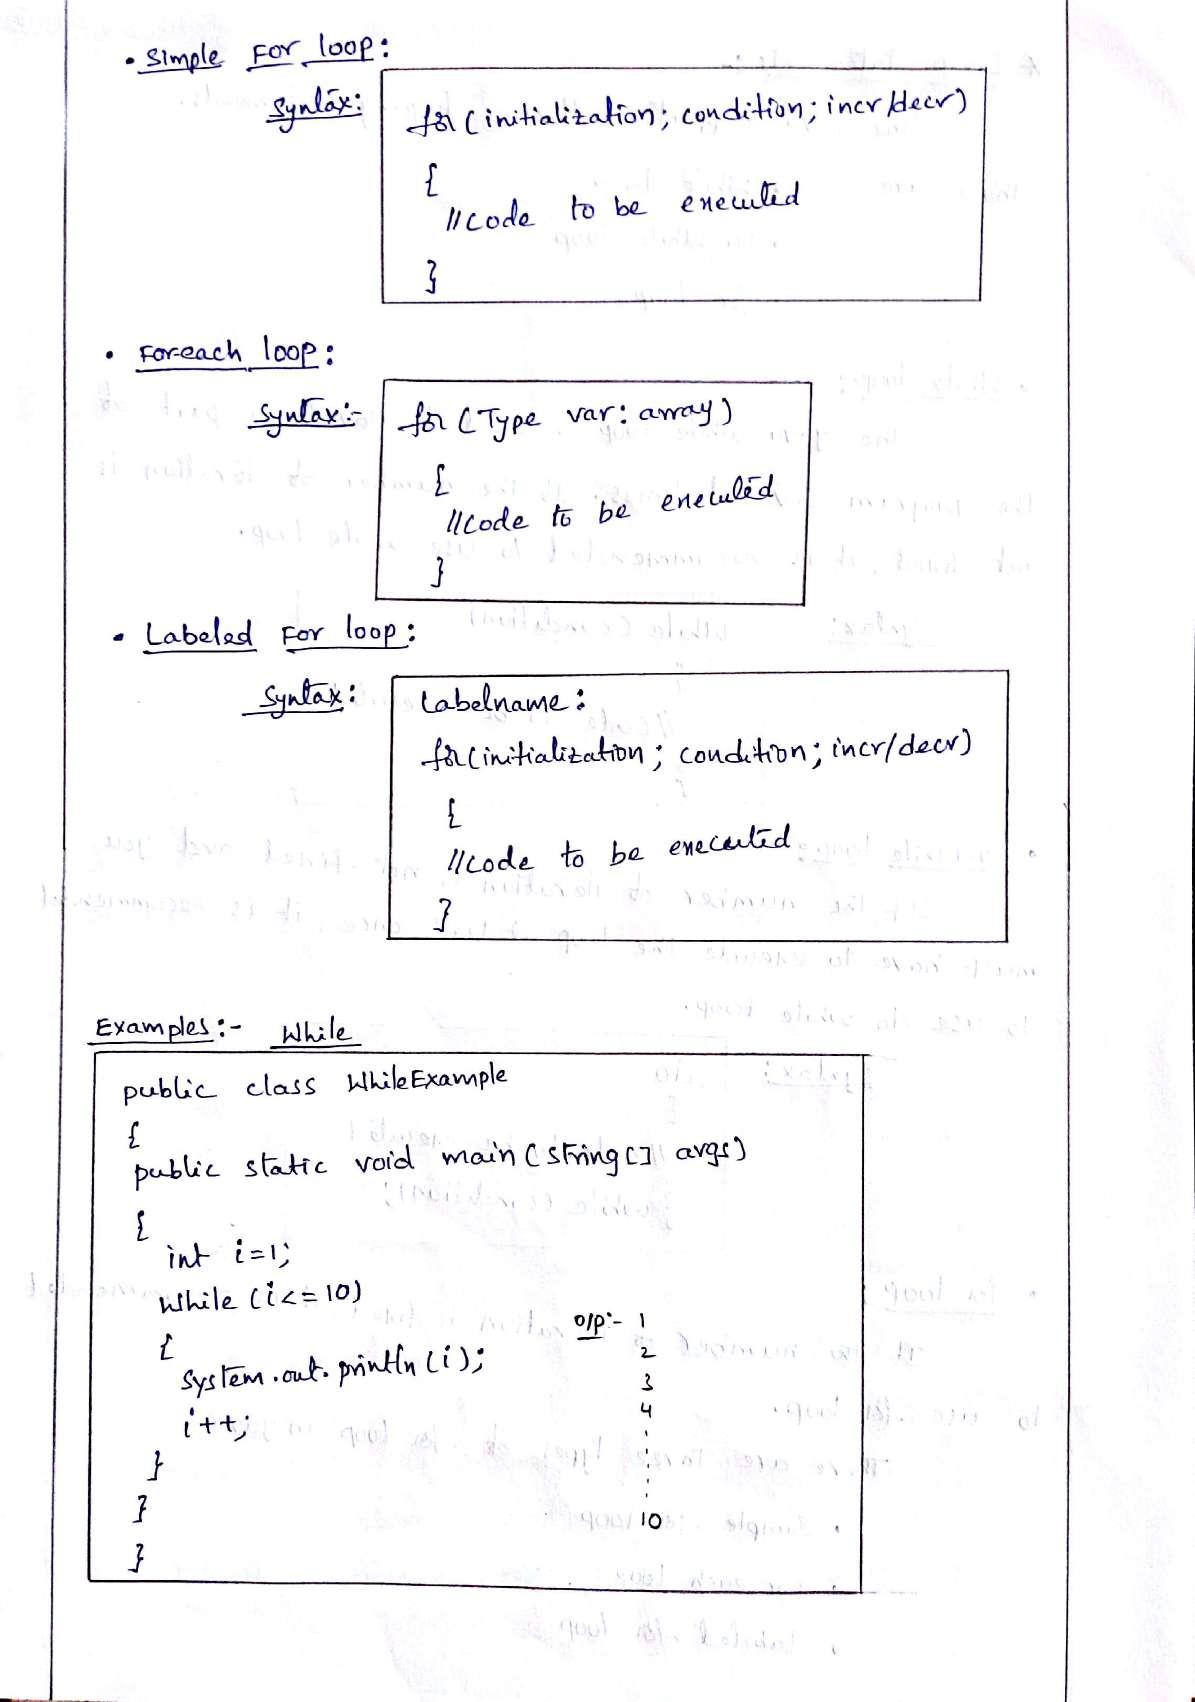 • Simple For loop:
Syntax:
for (initialization; condition; incr/decr)
{
//code to be executed
}
• For-each loop:
Syntax:-
for (Type var: array)
{
//code to be executed
}
• Labeled For loop:
Syntax:
Labelname:
for (initialization; condition; incr/decr)
{
//code to be executed
}
Examples:- While
public class WhileExample
{
public static void main (string[] args)
{
int i=1;
while (i<=10)
{
system.out.println(i);
i++;
}
}
}
o/p:- 1
2
3
4
.
.
.
.
10